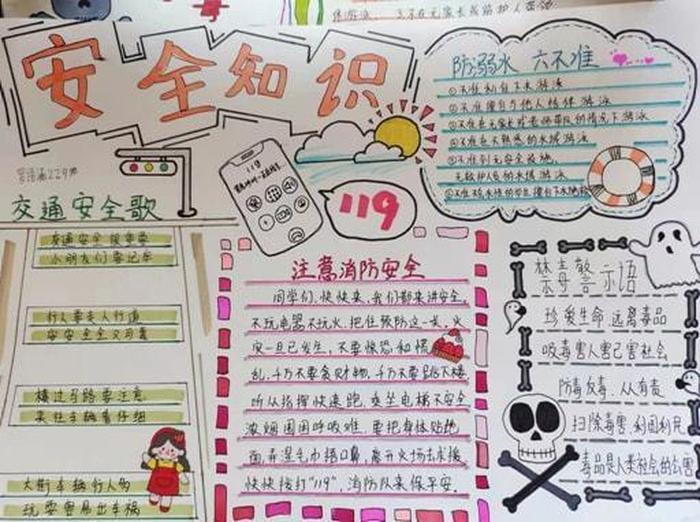 安全知识
防溺水 六不准
①不准私自下水游泳
②不准擅自与他人结伴游泳
③不准在无家长或老师带队的情况下游泳
④不准在不熟悉的水域游泳
⑤不准到无安全设施、
无救护人员的水域游泳
119
119
交通安全歌
交通安全很重要
小朋友们要记牢
行人要走人行道
安安全全又可靠
横过马路要注意
来往车辆看仔细
大街车辆行人多
玩耍容易出车祸
注意消防安全
同学们,快快来,我们都来讲安全。
不玩电器不玩火,把住预防这一关,火
灾一旦已发生,不要惊恐和慌
乱,千万不要贪财物,千万不要跳下楼
听从指挥快速跑,乘坐电梯不安全
浓烟围困呼吸难,要把身体贴地
面,弄湿毛巾捂口鼻,离开火场去求援,
快快拨打"119",消防队来保平安。
禁毒警示语
珍爱生命,远离毒品
吸毒害人害己害社会
防毒反毒,从有责
扫除毒害,利国利民
毒品是人类社会的公害